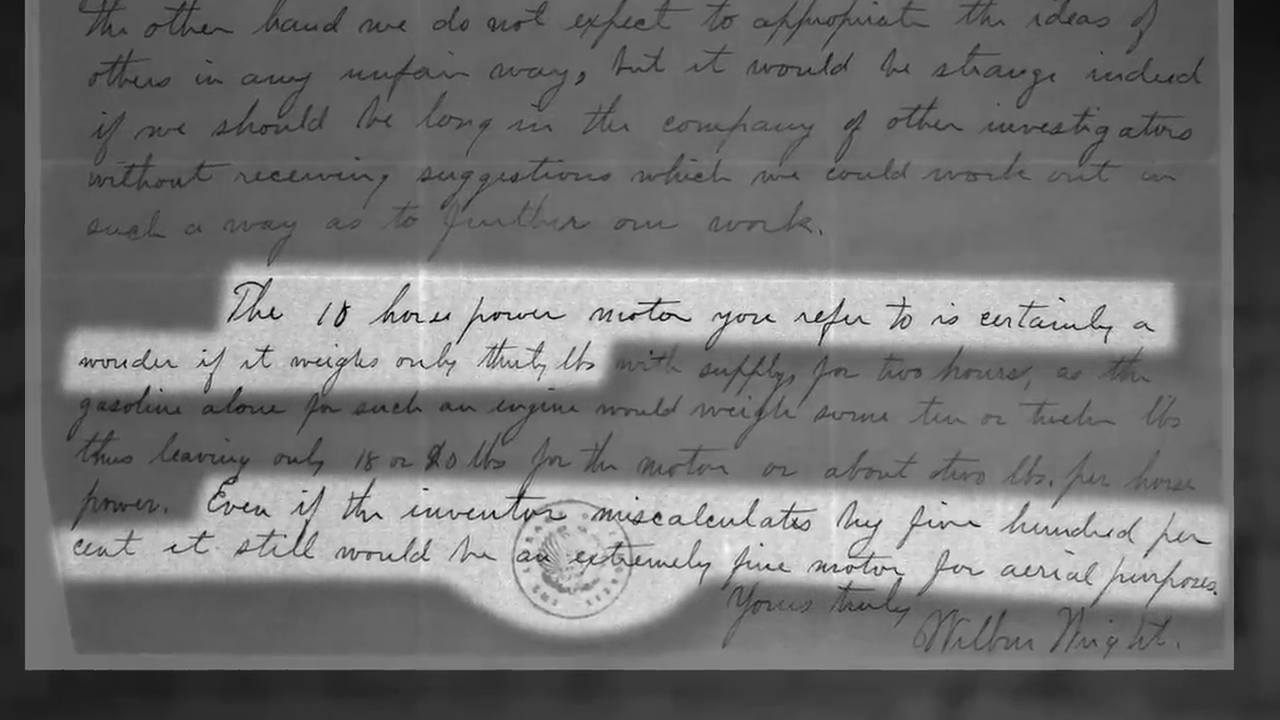 the other hand we do not expect to appropriate the ideas of
others in any unfair way, but it would be strange indeed
if we should be long in the company of other investigators
without receiving suggestions which we could work out in
such a way as to further our work.
The 18 horse power motor you refer to is certainly a
wonder if it weighs only thirty lbs with supply, for two hours, as the
gasoline alone for such an engine would weigh some ten or twelve lbs
thus leaving only 18 or 20 lbs for the motor or about two lbs. per horse
power. Even if the inventor miscalculates by five hundred per
cent it still would be an extremely fine motor for aerial purposes.
Yours truly
Wilbur Wright.